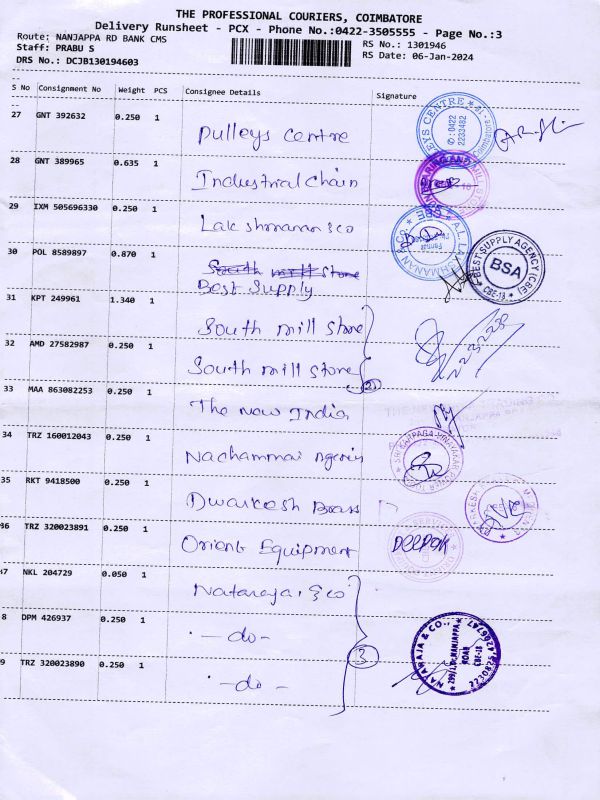 THE PROFESSIONAL COURIERS, COIMBATORE
Delivery Runsheet - PCX - Phone No.:0422-3505555 - Page No.:3
Route: NANJAPPA RD BANK CMS
RS No.: 1301946
Staff: PRABU S
RS Date: 06-Jan-2024
DRS No.: DCJB130194603
S No Consignment No Weight PCS Consignee Details Signature
27 GNT 392632 0.250 1 Pulleys Centre
EYS CENTRE
0422
2233482
Coimbatore
28 GNT 389965 0.635 1 Industrial chain
29 IXM 505696330 0.250 1 Lakshmanan & co
A.L. LAKSHMANAN & CO. CBE
30 POL 8589897 0.870 1 South mill Store
Best Supply
BEST SUPPLY AGENCY (CBE)
BSA
CBE-18
31 KPT 249961 1.340 1 South mill store
32 AMD 27582987 0.250 1 South mill store
2
33 MAA 863082253 0.250 1 The New India
THE NEW INDIA
34 TRZ 160012043 0.250 1 Nachammai Agencis
SRI KARPAGA VINAYAGAR
35 RKT 9418500 0.250 1 Dwarkesh Brass
36 TRZ 320023891 0.250 1 Orient Equipment
DEEPAK
37 NKL 204729 0.050 1 Nataraja & co
8 DPM 426937 0.250 1 -do-
3
NATARAJA & CO.,
299/1, Dr. NANJAPPA
ROAD
CBE-18
9 TRZ 320023890 0.250 1 -do-